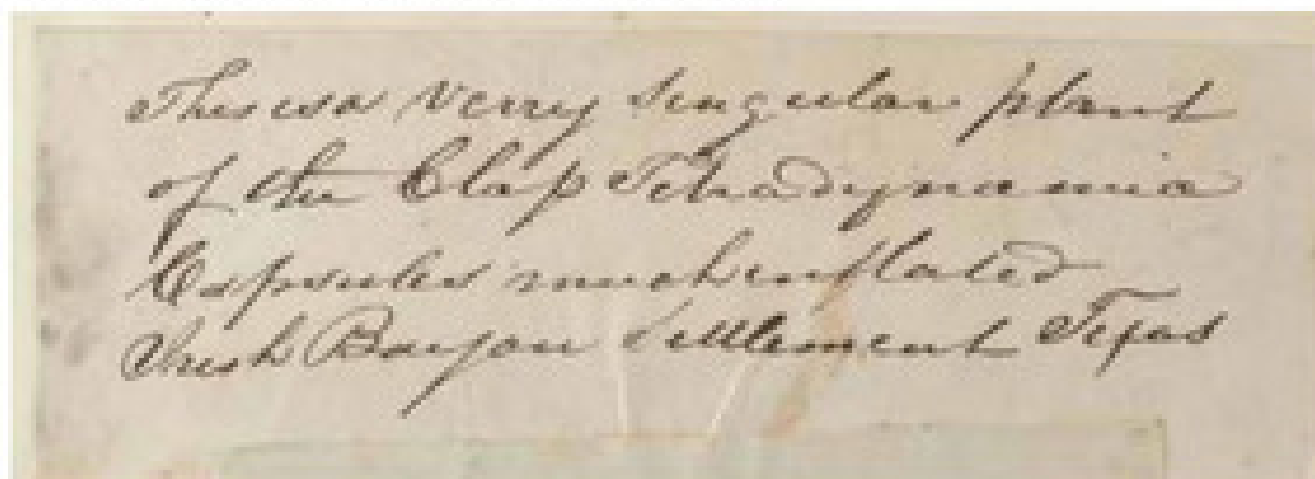 This is a verry singular plant
of the Class Tetradynamia
Capsules much inflated
Irish Bayou Settlement Texas